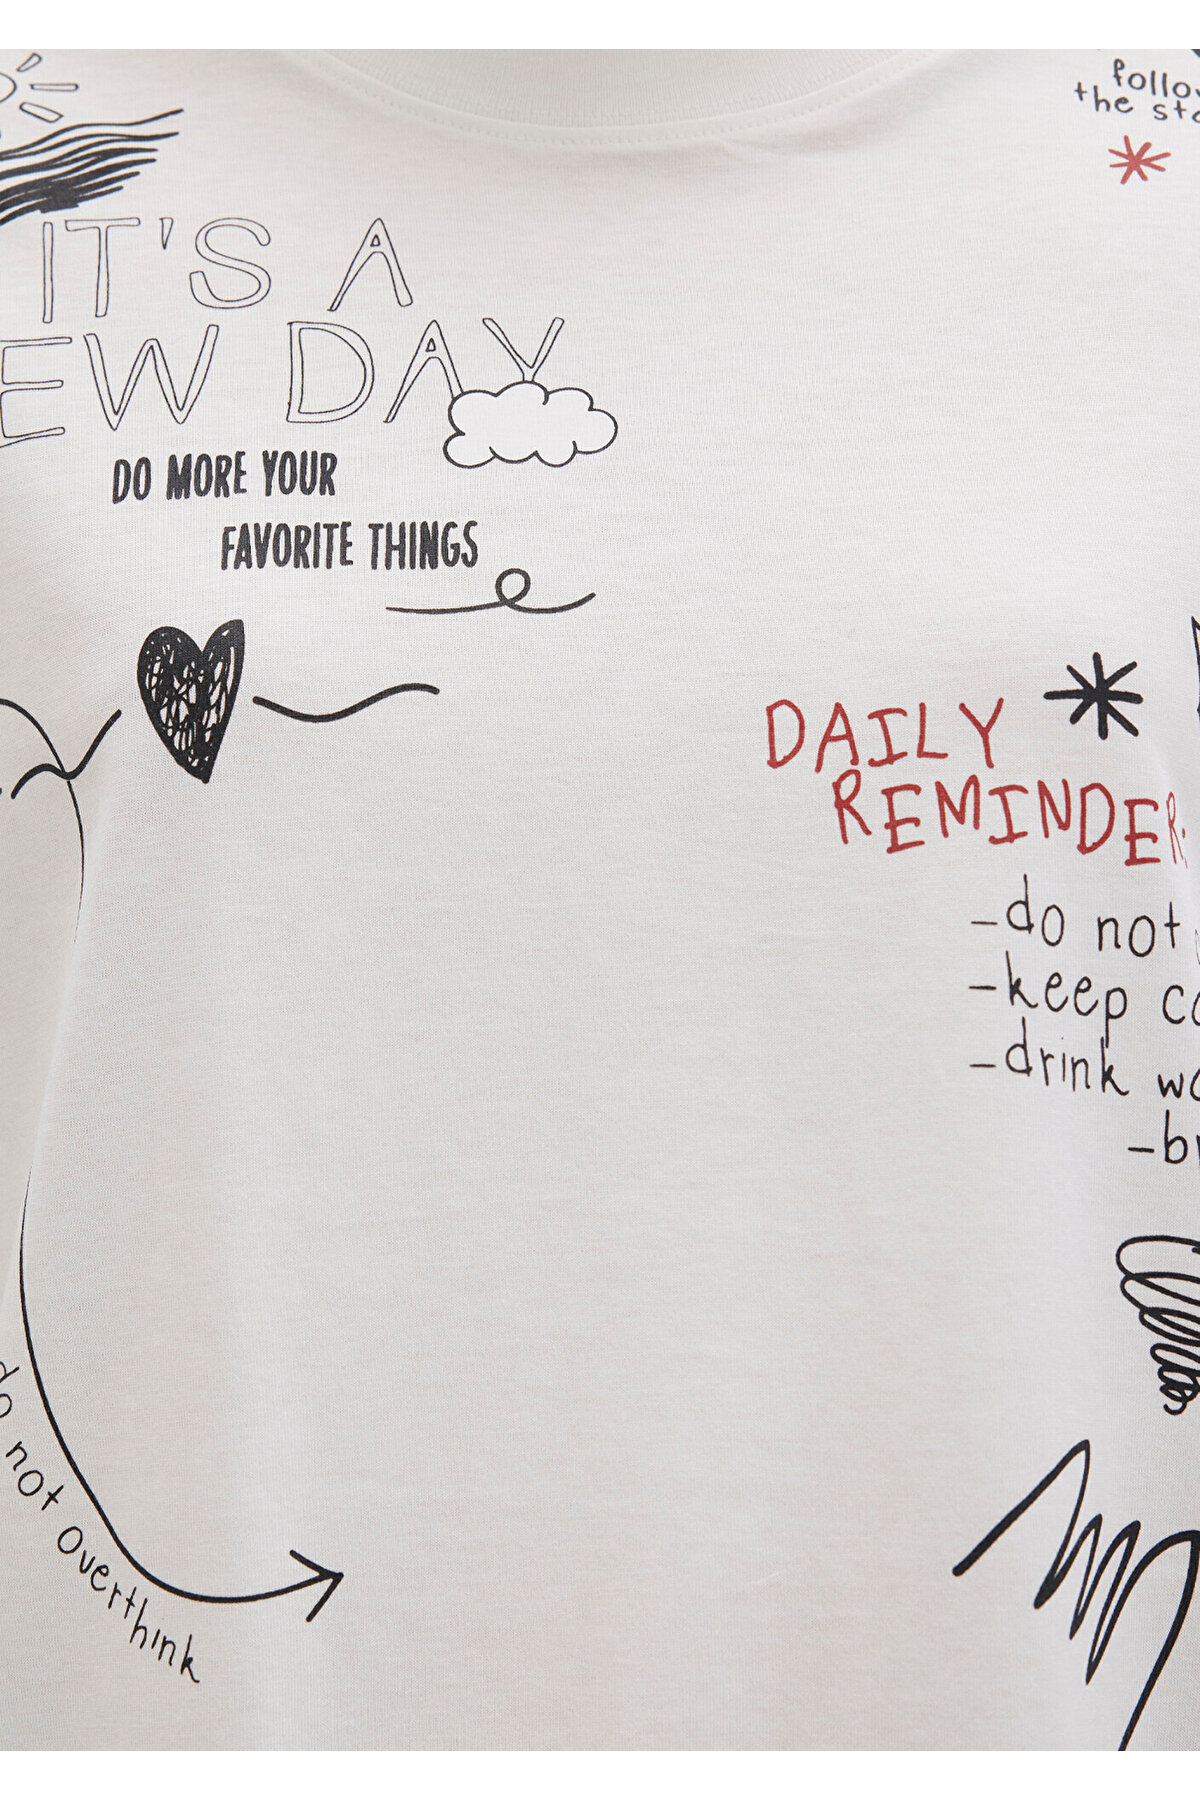 follow
the
IT'S A
NEW DAY
DO MORE YOUR
FAVORITE THINGS
DAILY
REMINDER
-do not
-keep
-drink
do not overthink